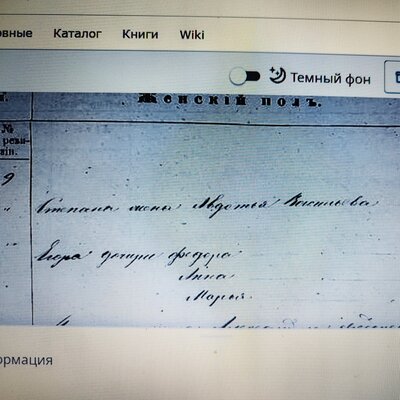 овные Каталог Книги Wiki
Темный фон
Женскій полъ.
№
реви-
зіи.
9
Степана жена Авдотья Васильева
Егора дочери Федора
Анна
Марья
ормация